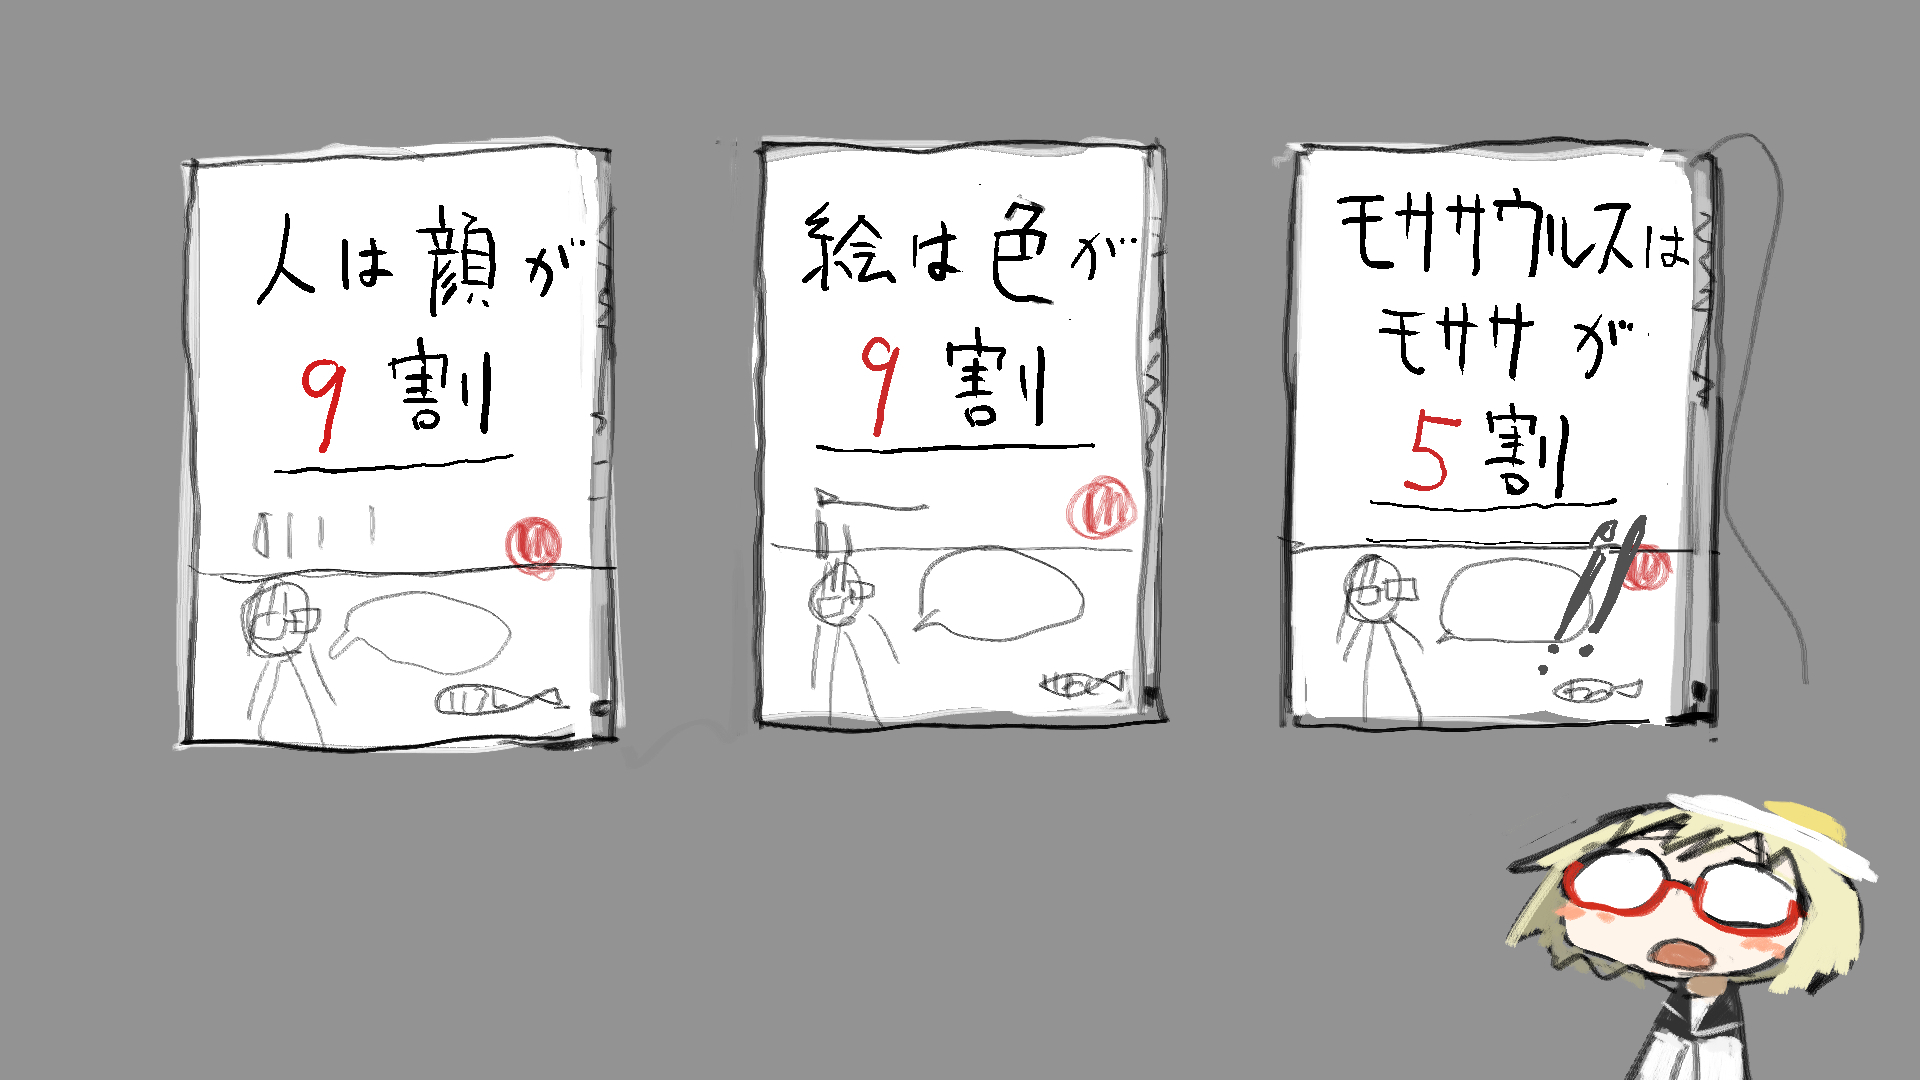 人は顔が
9割
絵は色が
9割
モササウルスは
モササが
5割